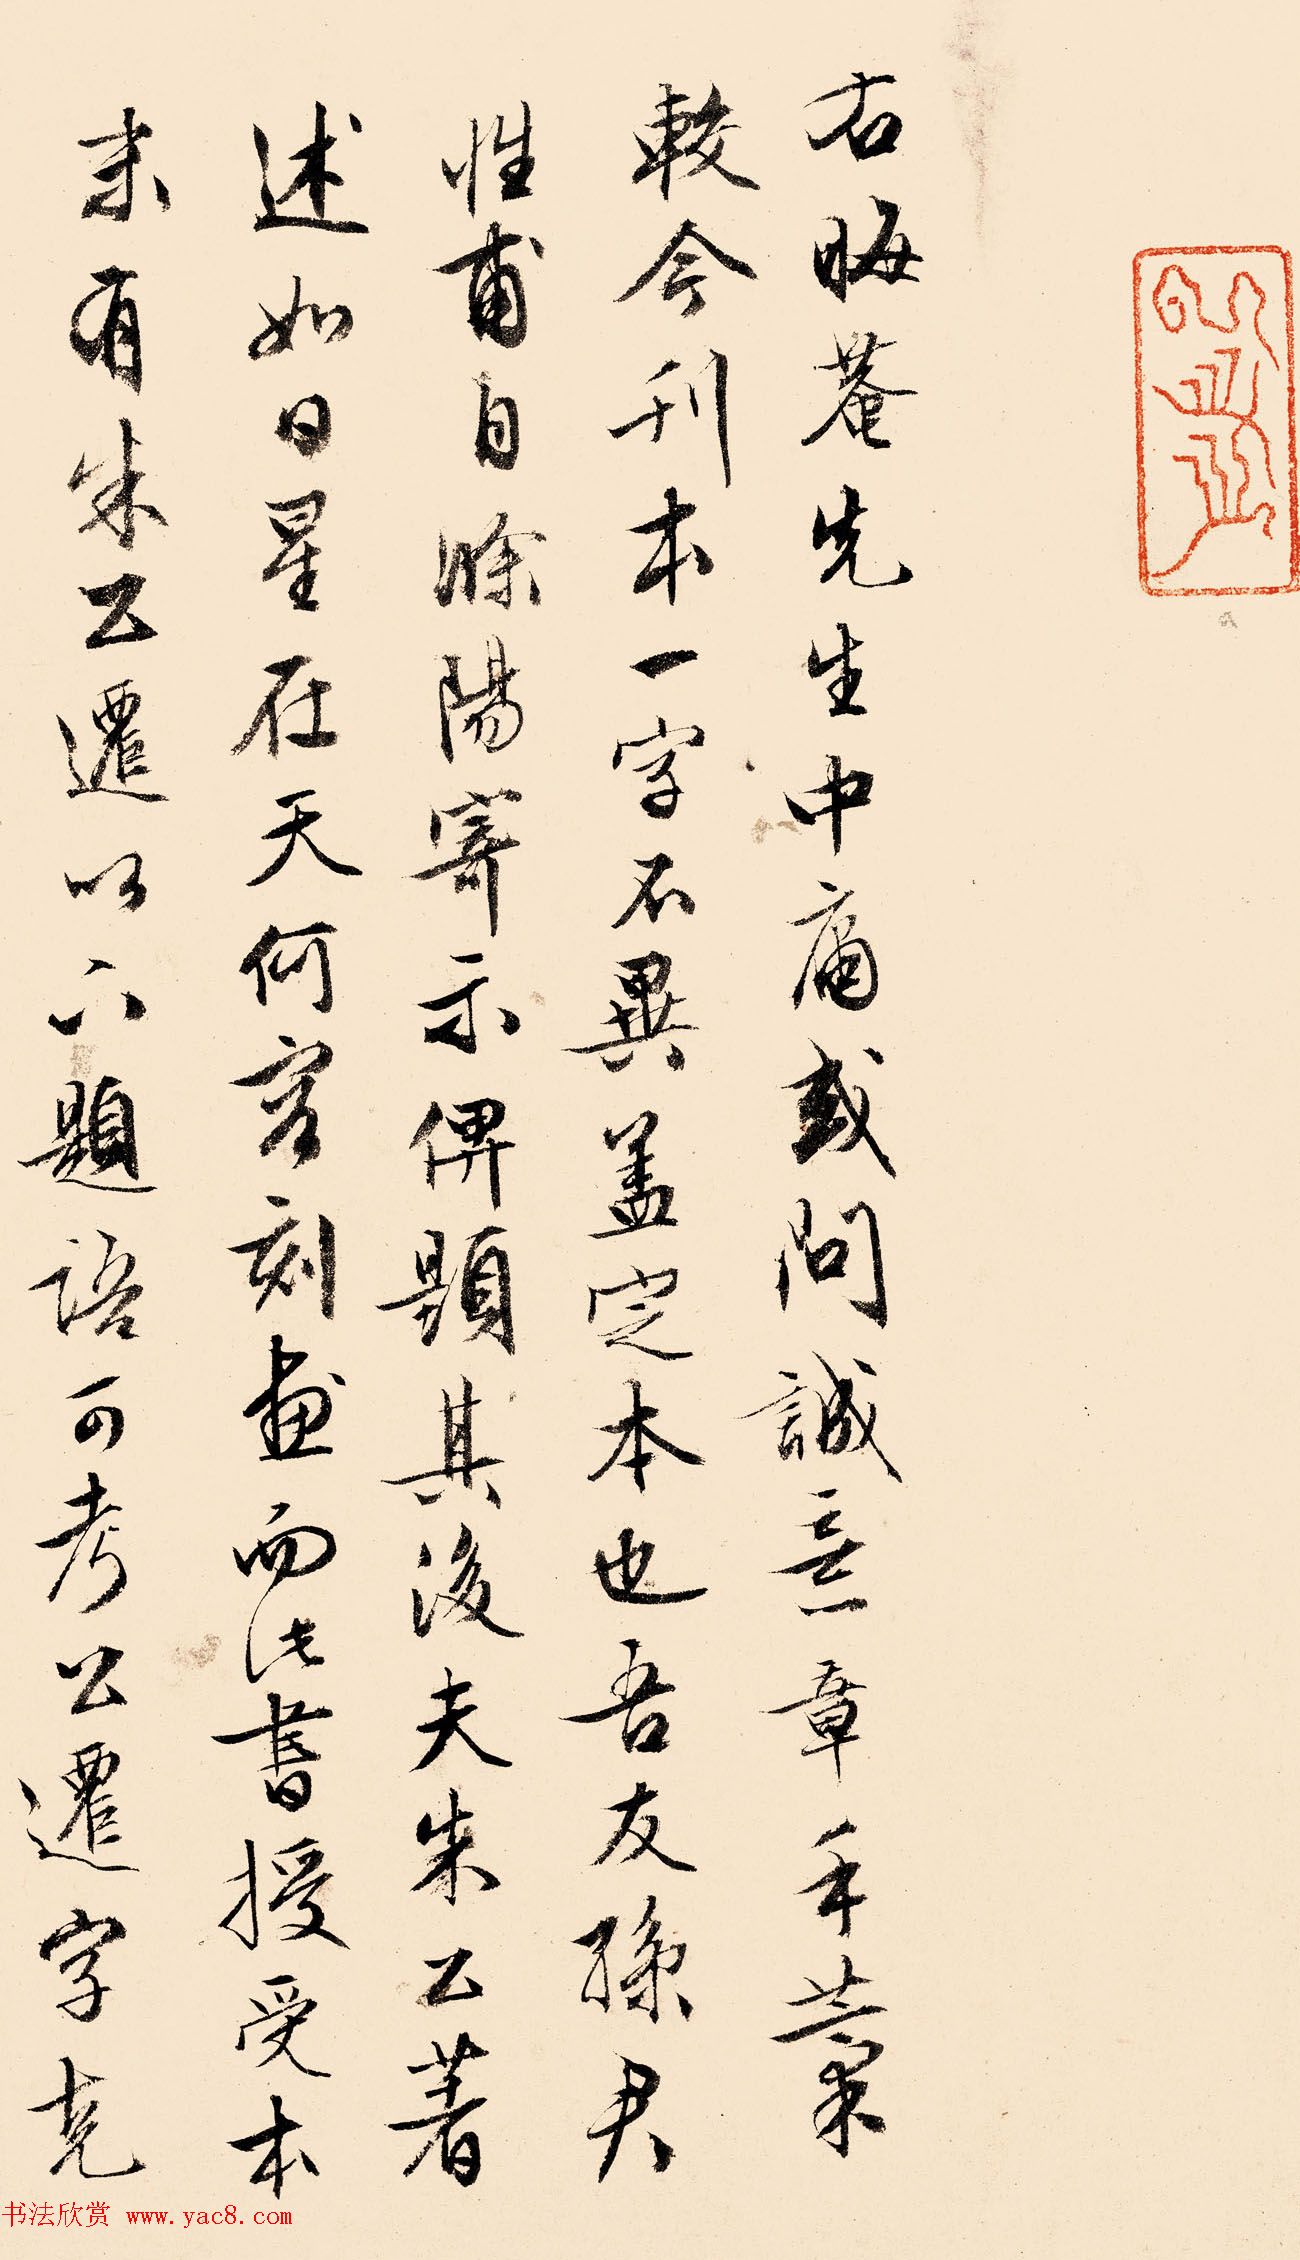 右晦菴先生中庸或問誠意章手藁
較今刊本一字不異蓋定本也吾友孫君
性甫自滁陽寄示俾題其後夫朱公著
述如日星在天何容刻畫而此書授受本
末有朱公遷以下題語可考公遷字克
书法欣赏 www.yac8.com